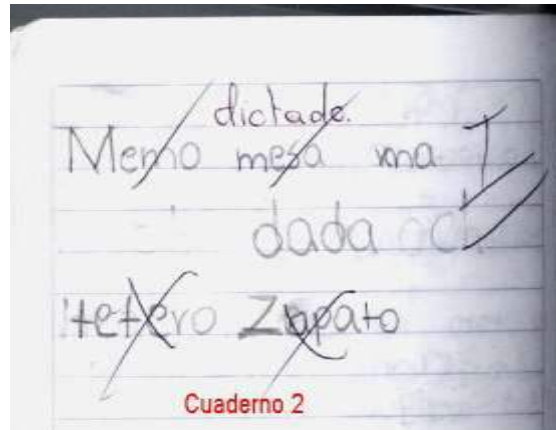 dictado.
Memo mesa ma T
dada och
tetero Zapato
Cuaderno 2